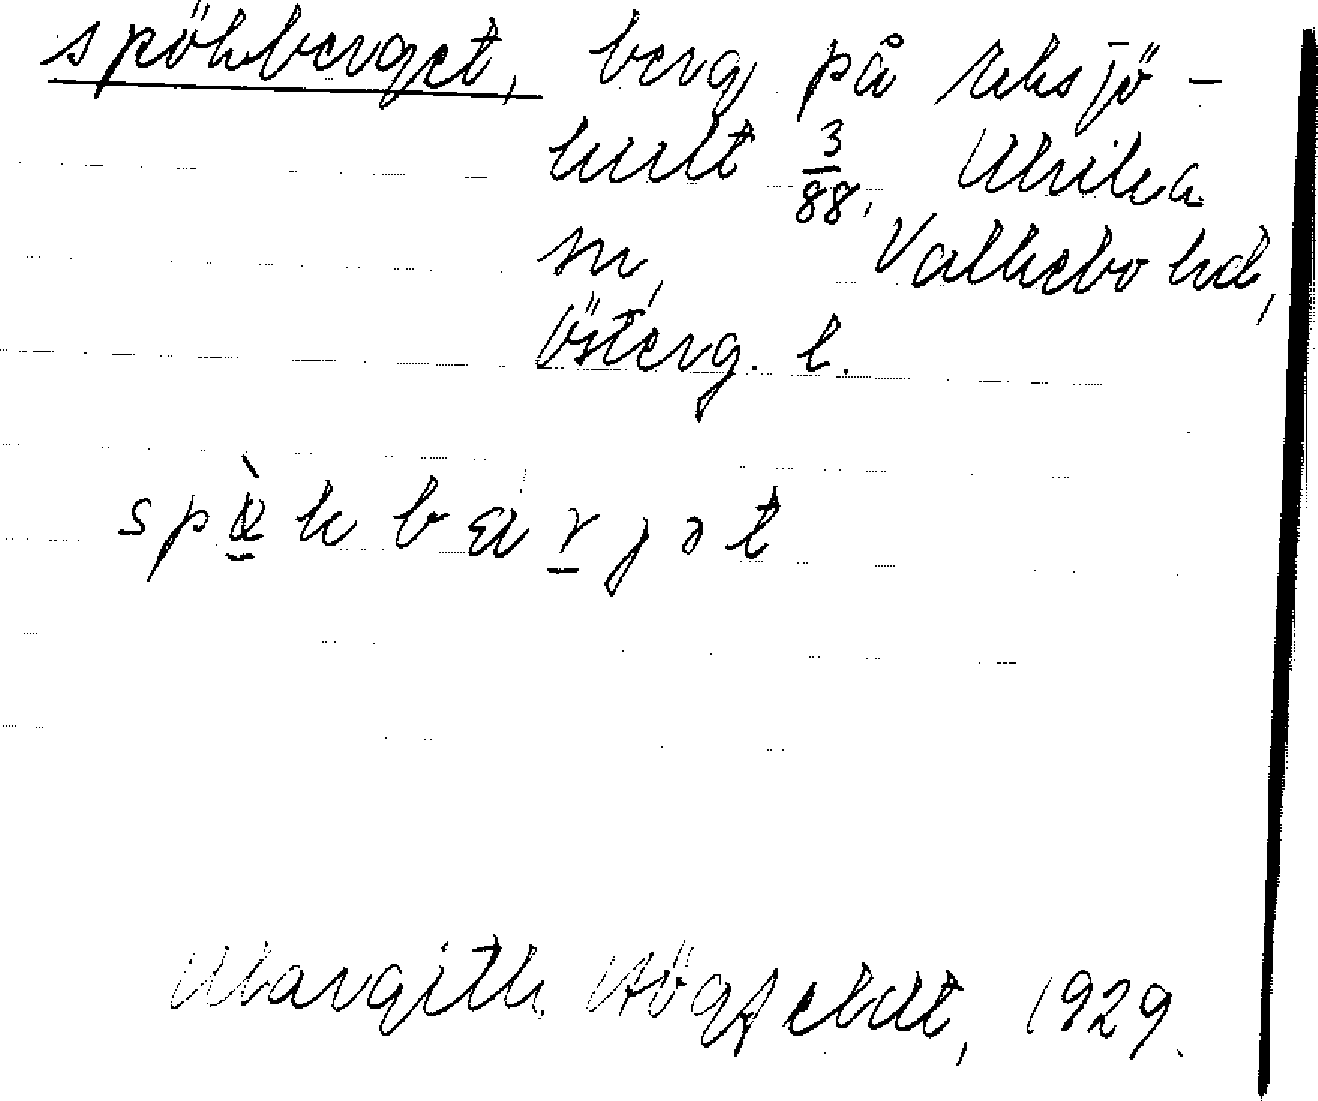 spökberget, berg på Reksjö-
hult 3/88, Ulrika
sn, Valkebo hd,
Österg. l.
Margith Högfeldt, 1929.